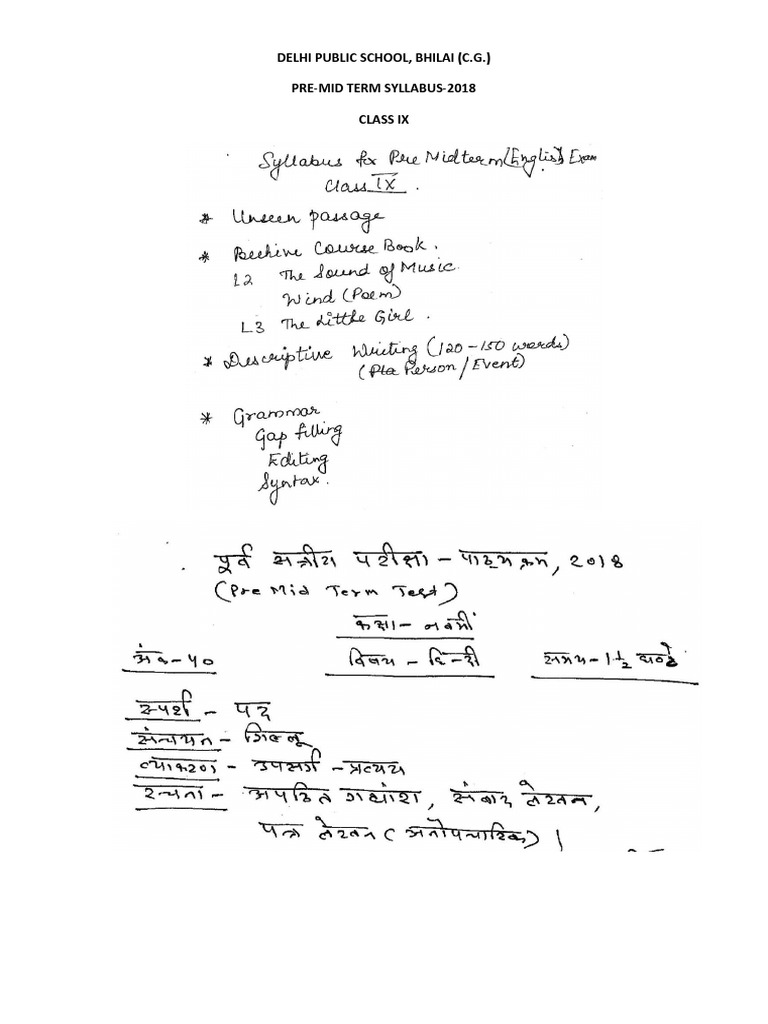 DELHI PUBLIC SCHOOL, BHILAI (C.G.)
PRE-MID TERM SYLLABUS-2018
CLASS IX
Syllabus for Pre Midterm [English] Exam
Class IX.
* Unseen passage
* Beehive Course Book.
L2 The Sound of Music.
Wind (Poem)
L3 The Little Girl.
* Descriptive Writing (120-150 words)
(Person/Event)
* Grammar
Gap filling
Editing
Syntax.
पूर्व सत्रीय परीक्षा - पाठ्यक्रम, 2018
(Pre Mid Term Test)
कक्षा - नवमीं
अंक - 40 विषय - हिन्दी समय - 1 1/2 घण्टे
स्पर्श - पद
संचयन - गिल्लू
व्याकरण - उपसर्ग - प्रत्यय
रचना - अपठित गद्यांश, संवाद लेखन,
पत्र लेखन (अनौपचारिक) |